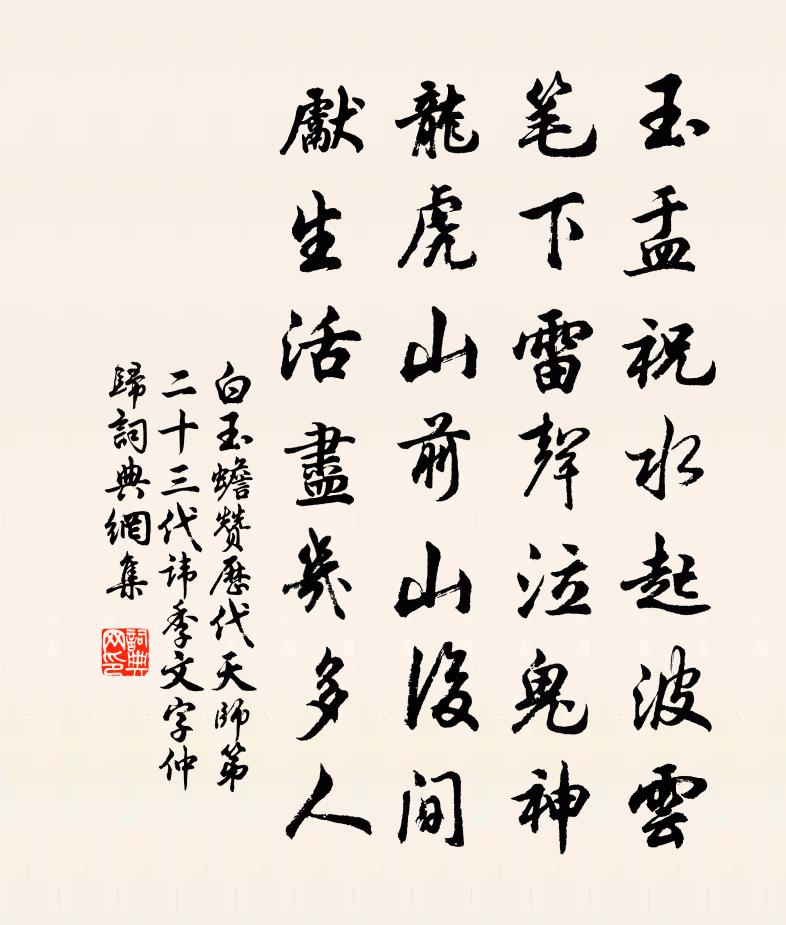 玉盂祝水起波雲
笔下雷聲泣鬼神
龍虎山前山後間
獻生活盡幾多人
白玉蟾贊歷代天師第
二十三代諱季文字仲
歸詞典網集
詞典
网印